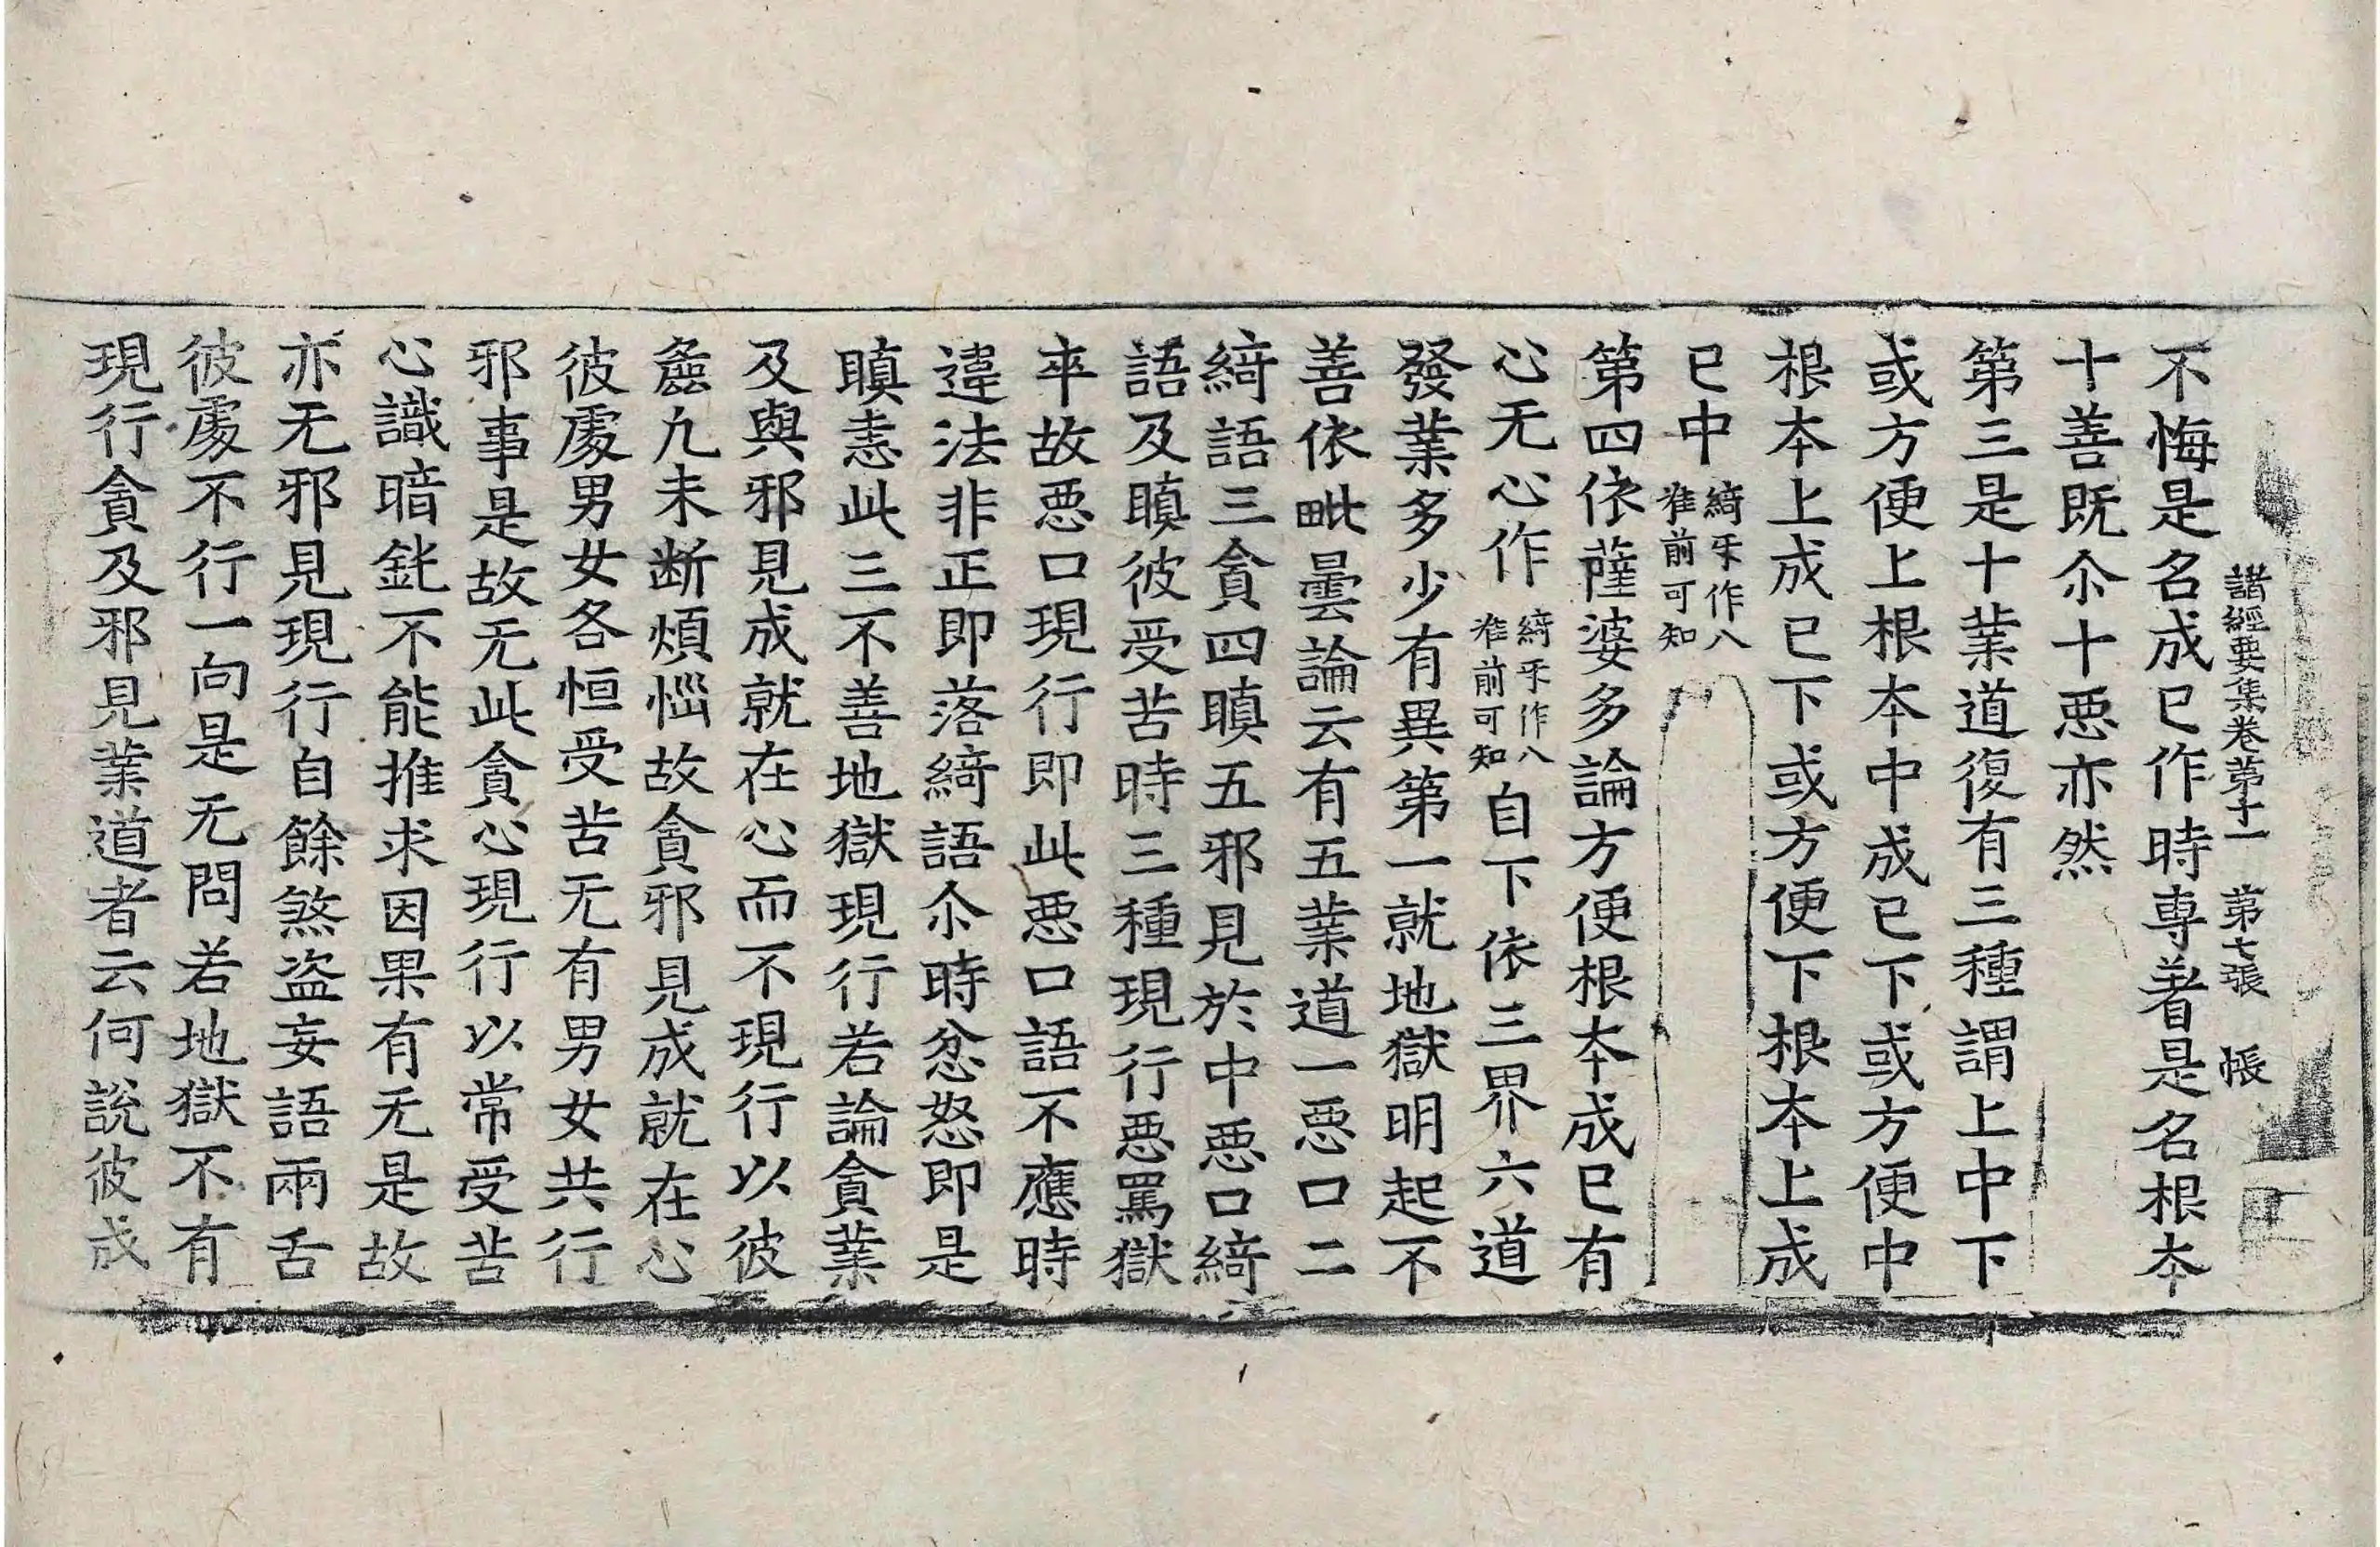 諸經要集卷第十一　第七張　帳
不悔是名成已作時専著是名根夲
十善既尒十惡亦然
第三是十業道復有三種謂上中下
或方便上根夲中成已下或方便中
根夲上成已下或方便下根夲上成
已中
綺牙作八
准前可知
第四依薩婆多論方便根夲成已有
心无心作
綺牙作八
准前可知
自下依三界六道
發業多少有異第一就地獄明起不
善依毗曇論云有五業道一惡口二
綺語三貪四瞋五邪見於中惡口綺
語及瞋彼受苦時三種現行惡罵獄
卒故惡口現行即此惡口語不應時
違法非正即落綺語尒時忿怒即是
瞋恚此三不善地獄現行若論貪業
及與邪見成就在心而不現行以彼
麁九未断煩惱故貪邪見成就在心
彼䖏男女各恒受苦无有男女共行
邪事是故无此貪心現行以常受苦
心識暗鈍不能推求因果有无是故
亦无邪見現行自餘煞盗妄語兩舌
彼䖏不行一向是无問若地獄不有
現行貪及邪見業道者云何說彼成